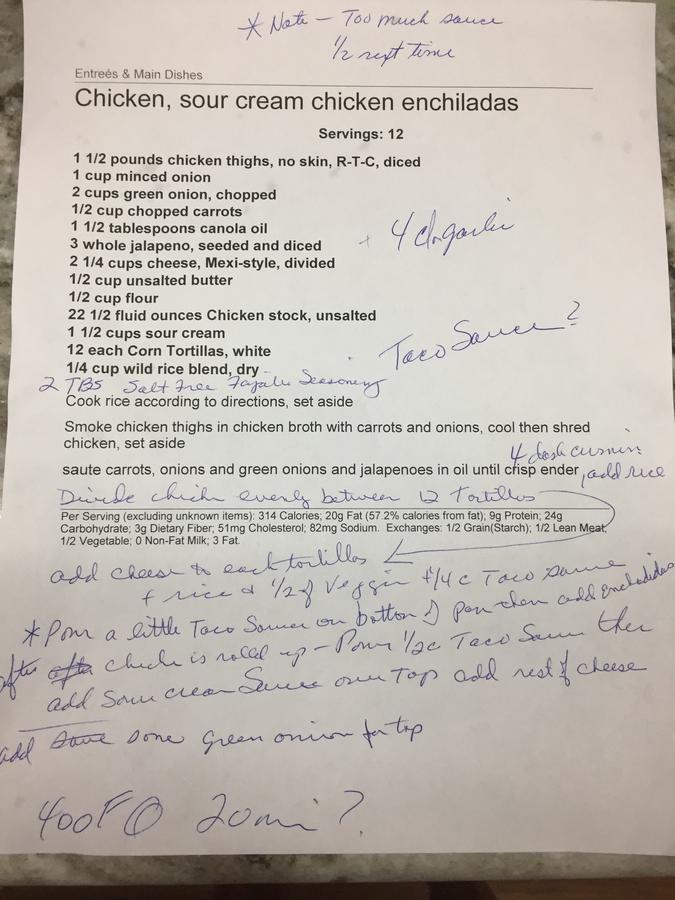 * Note - Too much sauce
1/2 next time
Entreés & Main Dishes
Chicken, sour cream chicken enchiladas
Servings: 12
1 1/2 pounds chicken thighs, no skin, R-T-C, diced
1 cup minced onion
2 cups green onion, chopped
1/2 cup chopped carrots
1 1/2 tablespoons canola oil
3 whole jalapeno, seeded and diced
+ 4 cl garlic
2 1/4 cups cheese, Mexi-style, divided
1/2 cup unsalted butter
1/2 cup flour
22 1/2 fluid ounces Chicken stock, unsalted
1 1/2 cups sour cream
Taco Sauce?
12 each Corn Tortillas, white
1/4 cup wild rice blend, dry
2 TBS Salt Free Fajita Seasoning
Cook rice according to directions, set aside
Smoke chicken thighs in chicken broth with carrots and onions, cool then shred
chicken, set aside
4 dash cumin
saute carrots, onions and green onions and jalapenoes in oil until crisp ender, add rice
Divide chicken evenly between 12 Tortillas
Per Serving (excluding unknown items): 314 Calories; 20g Fat (57.2% calories from fat); 9g Protein; 24g
Carbohydrate; 3g Dietary Fiber; 51mg Cholesterol; 82mg Sodium. Exchanges: 1/2 Grain(Starch); 1/2 Lean Meat;
1/2 Vegetable; 0 Non-Fat Milk; 3 Fat.
add cheese to each tortillas
+ rice + 1/2 of Veggies + 1/4 c Taco sauce
* Pour a little Taco Sauce on bottom of pan then add Enchiladas
after chicken is rolled up - Pour 1/2 c Taco Sauce then
add Sour cream Sauce over Top add rest of cheese
add some green onion for top
400F 20 min ?